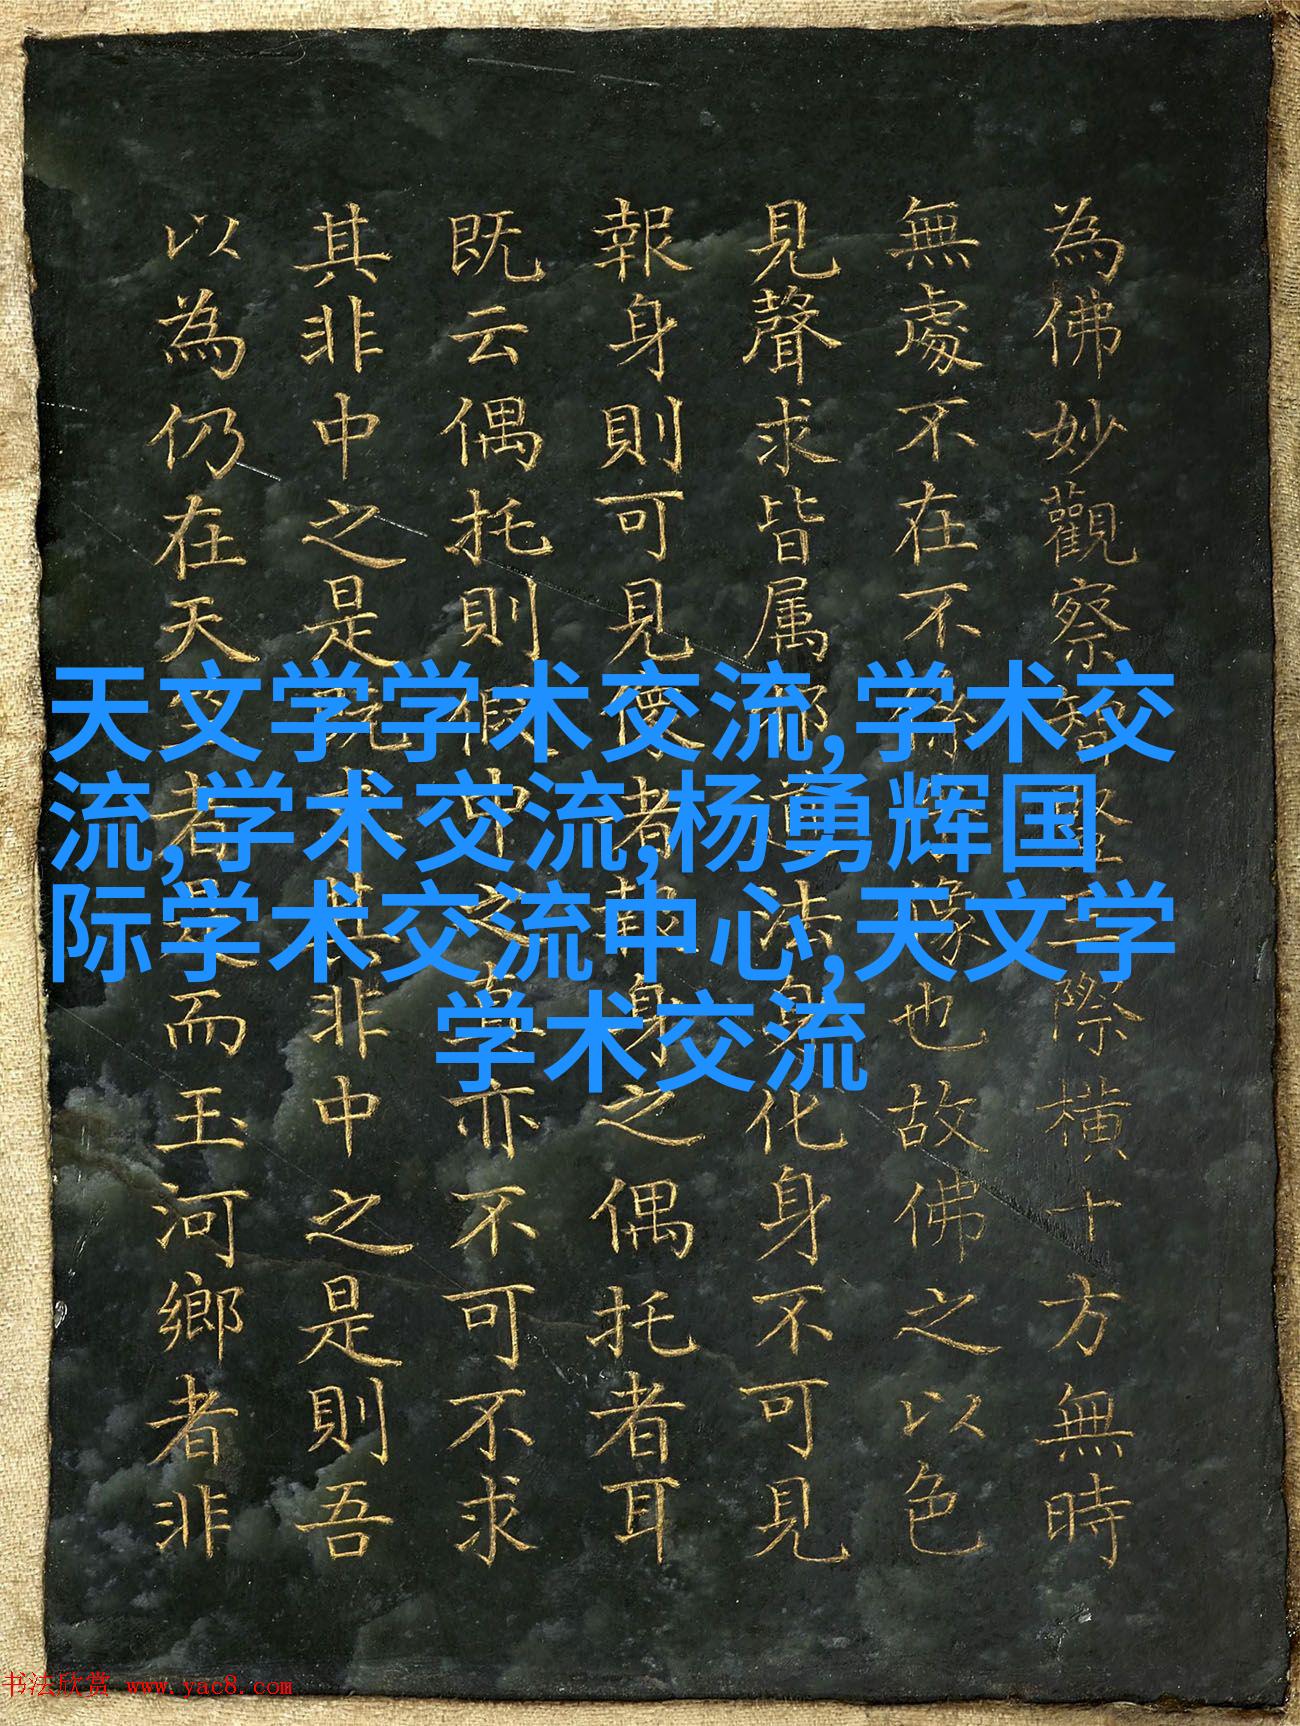 天文学学术交流,学术交
流,学术交流,杨勇辉国
际学术交流中心,天文学
学术交流
為佛妙觀察智竪三際橫十方無時
無處不在不緣也故佛之以色
見聲求皆属邪道法身化身不可見
報身則可見者報身之偶托者耳
既云偶托則假中之真亦不可不求
其非中之是既求其非中之是則吾
以為仍在天者是而玉河鄉者非
书法欣赏 www.yac8.com